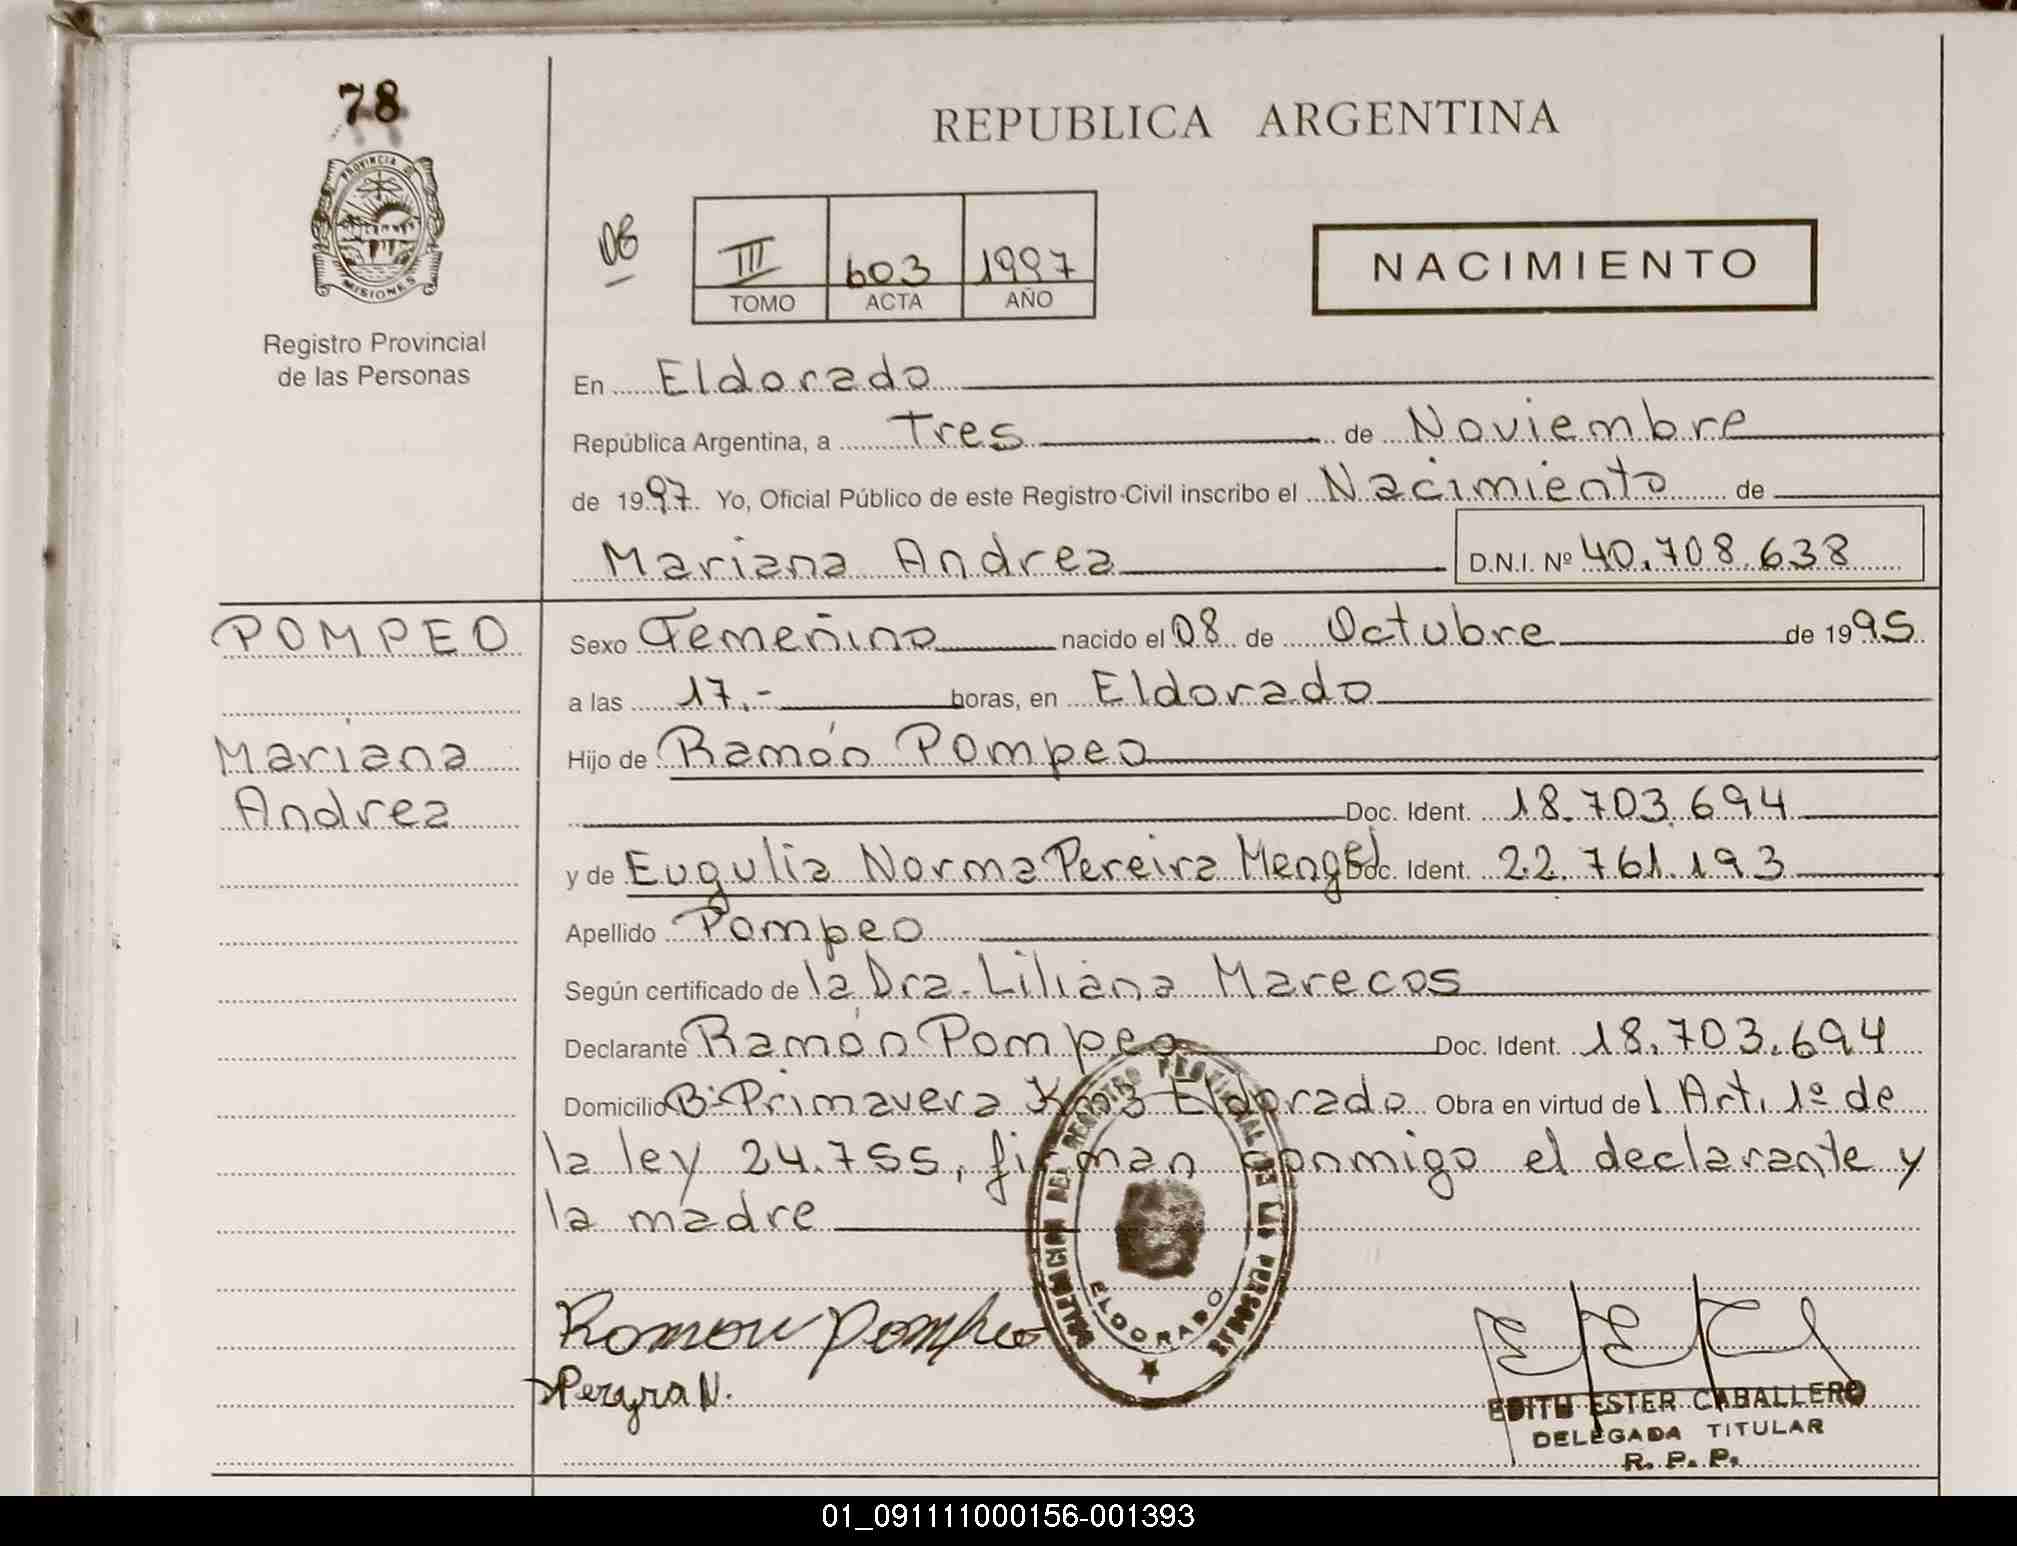 78
PROVINCIA D
MISIONES
Registro Provincial
de las Personas
REPUBLICA ARGENTINA
08
III 603 1997
TOMO ACTA AÑO
NACIMIENTO
En Eldorado
República Argentina, a Tres de Noviembre
de 1997 Yo, Oficial Público de este Registro Civil inscribo el Nacimiento de
Mariana Andrea D.N.I. Nº 40.708.638
POMPEO
Mariana
Andrea
Sexo Femenino nacido el 08 de Octubre de 1995
a las 17.- horas, en Eldorado
Hijo de Ramón Pompeo
Doc. Ident. 18.703.694
y de Eugulia Norma Pereira Mengel Doc. Ident. 22.761.193
Apellido Pompeo
Según certificado de la Dra. Liliana Marecos
Declarante Ramón Pompeo Doc. Ident. 18.703.694
Domicilio Bº Primavera Km3 Eldorado Obra en virtud del Art. 1º de
la ley 24.755, firman conmigo el declarante y
la madre
DELEGACION DEL REGISTRO PROVINCIAL DE LAS PERSONAS
ELDORADO
Ramon Pompeo
Pereyra N.
EDITH ESTER CABALLERO
DELEGADA TITULAR
R. P. P.
01_091111000156-001393